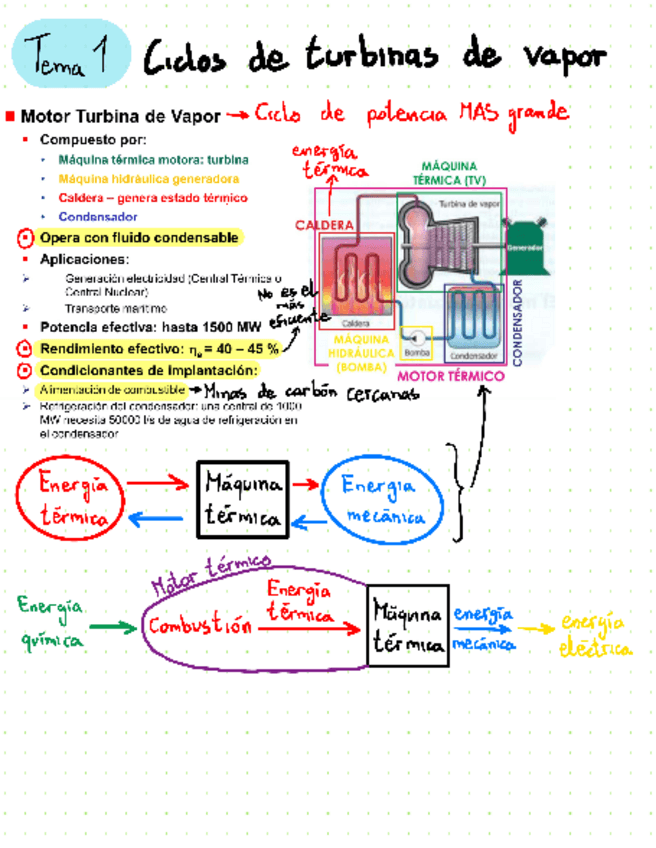 Tema 1 Ciclos de turbinas de vapor
Motor Turbina de Vapor → Ciclo de potencia MAS grande
Compuesto por:
Máquina térmica motora: turbina
Máquina hidráulica generadora
Caldera – genera estado térmico
Condensador
Opera con fluido condensable
Aplicaciones:
Generación electricidad (Central Térmica o
Central Nuclear)
Transporte marítimo
Potencia efectiva: hasta 1500 MW
Rendimiento efectivo: ηe = 40 – 45 %
No es el
más
eficiente
Condicionantes de implantación:
Alimentación de combustible → Minas de carbón cercanas
Refrigeración del condensador: una central de 1000
MW necesita 50000 l/s de agua de refrigeración en
el condensador
energía
térmica
MÁQUINA
TÉRMICA (TV)
Turbina de vapor
CALDERA
Generador
Caldera
MÁQUINA
HIDRÁULICA
(BOMBA)
Bomba
Condensador
CONDENSADOR
MOTOR TÉRMICO
Energía
térmica
Máquina
térmica
Energía
mecánica
Motor térmico
Energía
química
Combustión
Energía
térmica
Máquina
térmica
energía
mecánica
energía
eléctrica